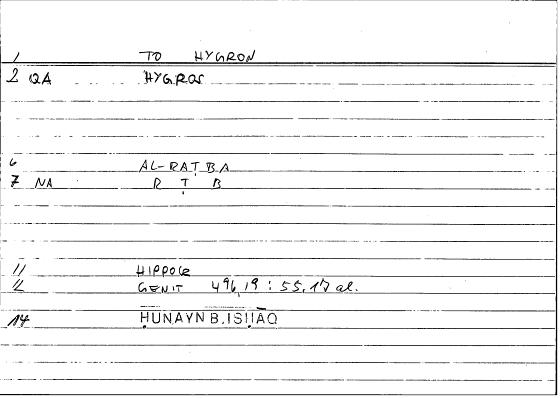 1 TO HYGRON
2 QA HYGROS
6 AL-RAṬBA
7 NA R Ṭ B
11 HIPPOCR
12 GENIT 496,19 : 55.17 al.
14 ḤUNAYN B. ISḤĀQ